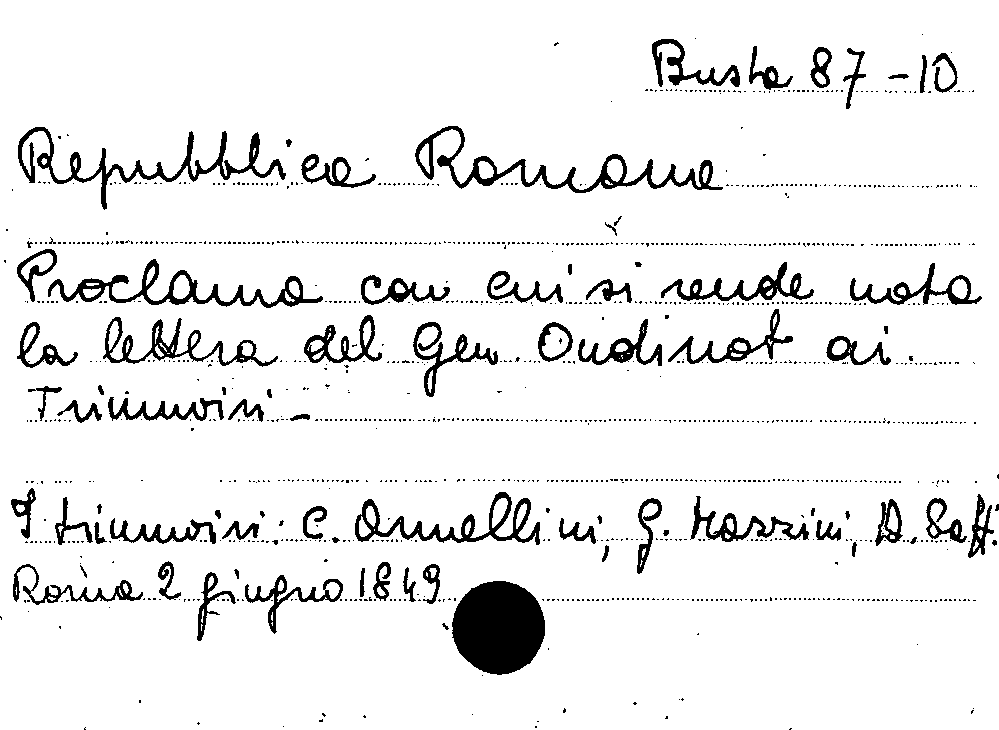 Busta 87-10
Repubblica Romana
Proclama con cui si rende nota
la lettera del Gen. Oudinot ai
Triumviri -
I triumviri: C. Armellini, G. Mazzini, A. Saffi.
Roma 2 giugno 1849